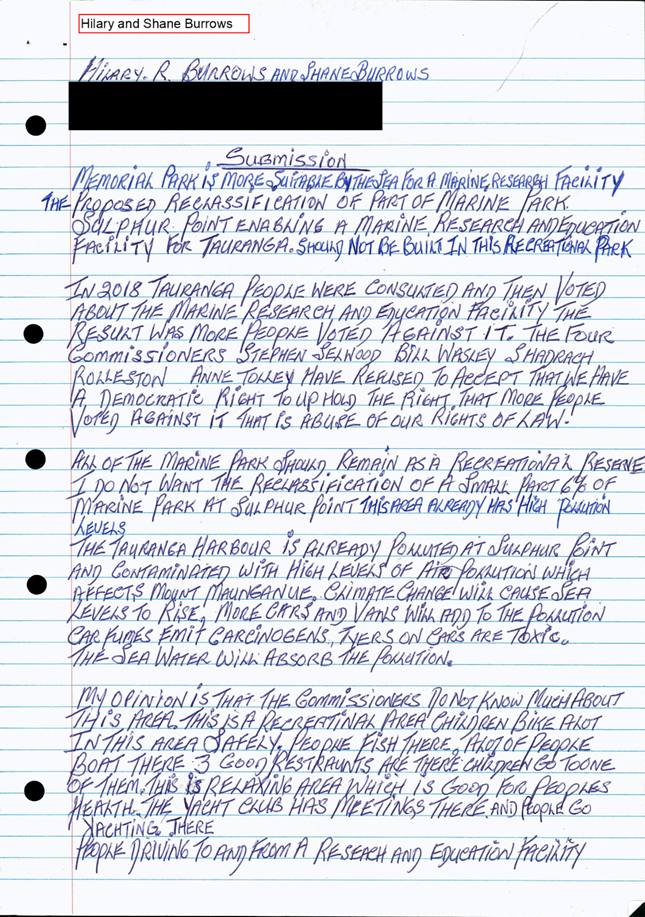 Hilary and Shane Burrows
HILARY. R. BURROWS AND SHANE BURROWS
SUBMISSION
MEMORIAL PARK IS MORE SUITABLE BY THE SEA FOR A MARINE RESEARCH FACILITY
THE PROPOSED RECLASSIFICATION OF PART OF MARINE PARK
SULPHUR POINT ENABLING A MARINE RESEARCH AND EDUCATION
FACILITY FOR TAURANGA. SHOULD NOT BE BUILT IN THIS RECREATIONAL PARK
IN 2018 TAURANGA PEOPLE WERE CONSULTED AND THEN VOTED
ABOUT THE MARINE RESEARCH AND EDUCATION FACILITY THE
RESULT WAS MORE PEOPLE VOTED AGAINST IT. THE FOUR
COMMISSIONERS STEPHEN SELWOOD BILL WASLEY SHADRACH
ROLLESTON ANNE TOLLEY HAVE REFUSED TO ACCEPT THAT WE HAVE
A DEMOCRATIC RIGHT TO UP HOLD THE RIGHT THAT MORE PEOPLE
VOTED AGAINST IT THAT IS ABUSE OF OUR RIGHTS OF LAW!
ALL OF THE MARINE PARK SHOULD REMAIN AS A RECREATIONAL RESERVE
I DO NOT WANT THE RECLASSIFICATION OF A SMALL PART 6% OF
MARINE PARK AT SULPHUR POINT THIS AREA ALREADY HAS HIGH POLLUTION
LEVELS
THE TAURANGA HARBOUR IS ALREADY POLLUTED AT SULPHUR POINT
AND CONTAMINATED WITH HIGH LEVELS OF AIR POLLUTION WHICH
AFFECTS MOUNT MAUNGANUE. CLIMATE CHANGE WILL CAUSE SEA
LEVELS TO RISE, MORE CARS AND VANS WILL ADD TO THE POLLUTION
CAR FUMES EMIT CARCINOGENS, TYERS ON CARS ARE TOXIC.
THE SEA WATER WILL ABSORB THE POLLUTION.
MY OPINION IS THAT THE COMMISSIONERS DO NOT KNOW MUCH ABOUT
THIS AREA. THIS IS A RECREATINAL AREA CHILDREN BIKE ALOT
IN THIS AREA SAFELY. PEOPLE FISH THERE, ALOT OF PEOPLE
BOAT THERE 3 GOOD RESTRAUNTS ARE THERE CHILDREN GO TO ONE
OF THEM. THIS IS RELAXING AREA WHICH IS GOOD FOR PEOPLES
HEALTH. THE YACHT CLUB HAS MEETINGS THERE AND PEOPLE GO
YACHTING THERE
PEOPLE DRIVING TO AND FROM A RESEACH AND EDUCATION FACILITY